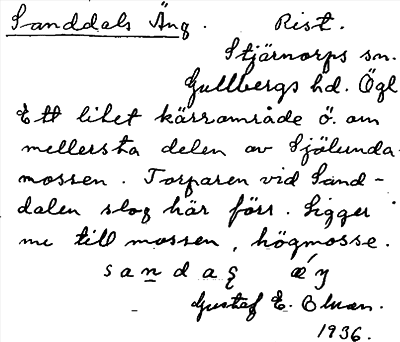 Sanddals Äng. Rist.
Stjärnorps sn.
Gullbergs hd. Ögl
Ett litet kärrområde ö. om
mellersta delen av Själunda-
mossen. Torparen vid Sand-
dalen slog här förr. Ligger
nu till mossen, högmosse.
Gustaf E. Oluan.
1936.